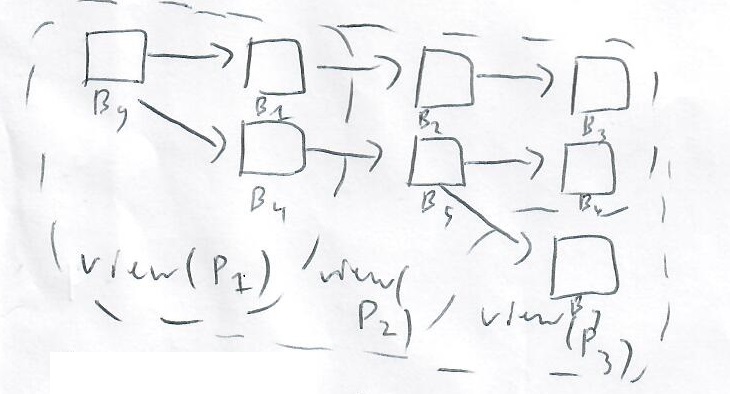 B1
B2
B3
B4
B5
view(P1)
view(
P2)
view(
P3)